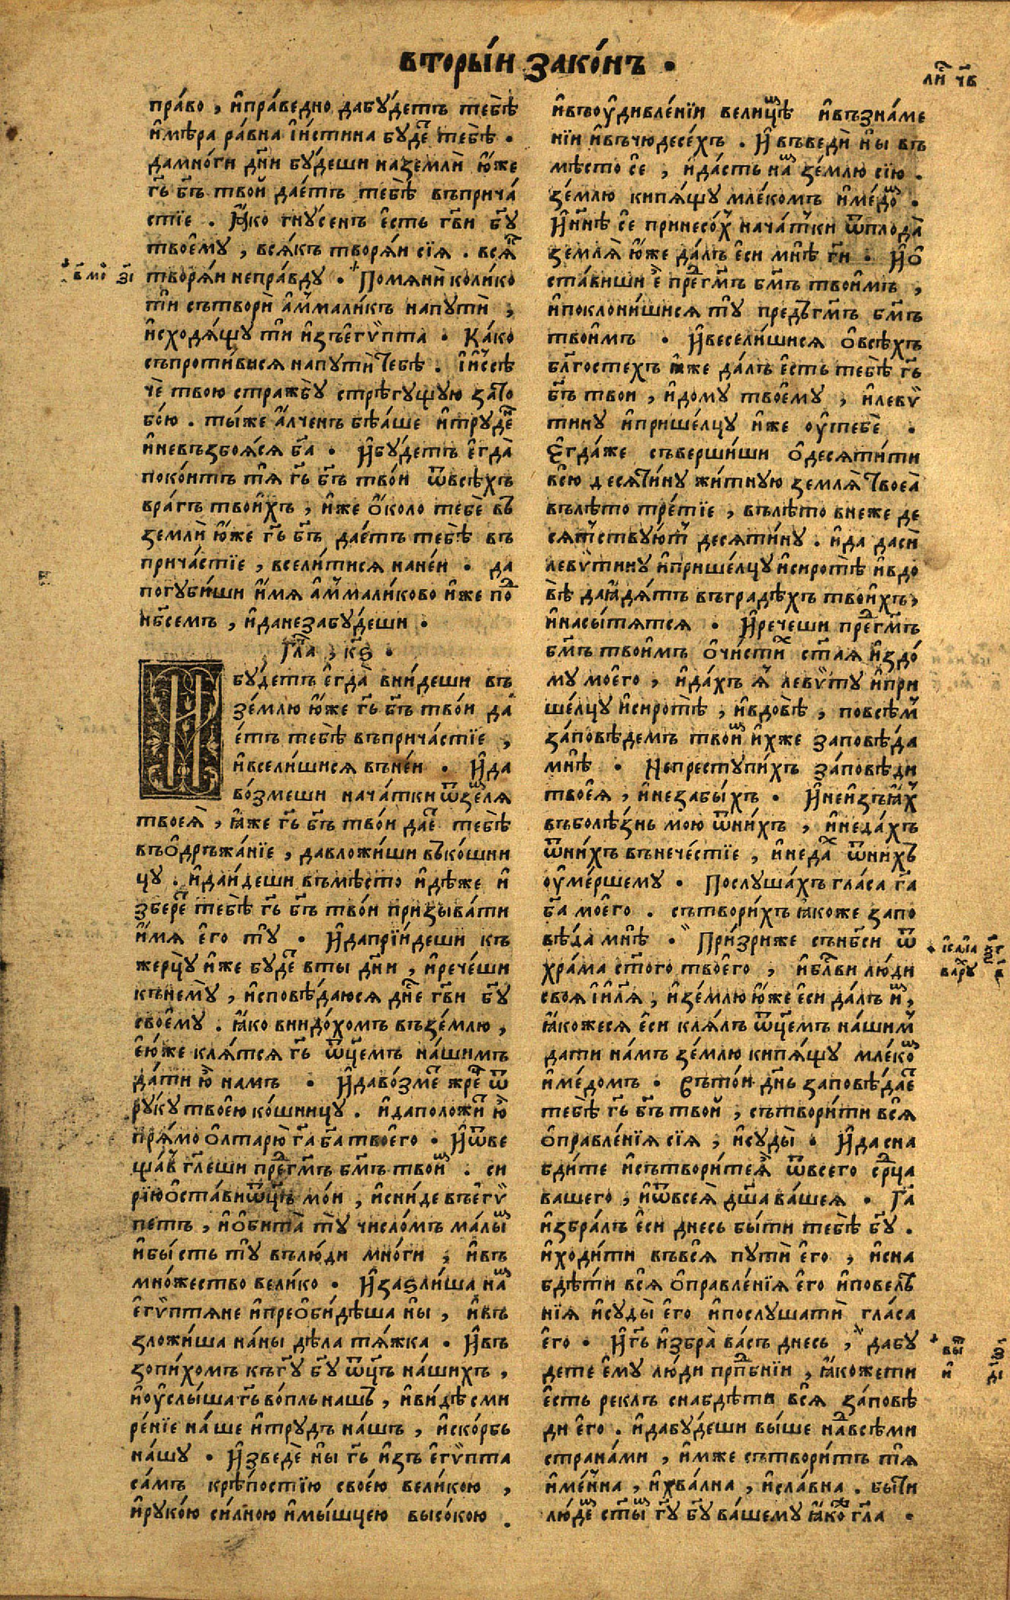 вторы́и зако́нъ .
ли҇ ч҃в
пра́во , и҆праведно дабꙋ́детъ тебѣ̀
и҆мѣра ра́вна и҆и҆́стина бꙋ́деⷮ тебѣ̀ .
дамно́ги дн҃и бꙋ́деши наземлѝ ю҆́же
гь҃ бг҃ъ твоѝ дае́тъ тебѣ̀ въприча́
стїе . Ꙗ҆́ко гнꙋсенъ є҆сть гв҃и бг҃ꙋ
твоемꙋ̀ , всѧ́къ творѧ́и сїѧ̀ . всѧ́кⷩ
творѧ́и непра́вдꙋ . Помѧнѝ коли́ко
тѝ сътворѝ а҆ммали́къ напꙋтѝ ,
и҆сходѧ́щꙋ тѝ и҆зъегѵ́пта . Ка́ко
съпроти́висѧ напꙋтѝ тебѣ̀ . и҆и҆ссѣ
чѐ твою̀ стра́жбꙋ стрѣгꙋ́щꙋю затⷪ
бо́ю . ты́же а҆́лченъ бѣ́аше и҆трꙋ́деⷩ
и҆невъзбоѧ́сѧ бг҃а . И҆бꙋ́детъ є҆гда̀
поко́итъ тѧ̀ гь҃ бг҃ъ тво́и ѿвсѣ́хъ
вра́гъ твои́хъ , и҆́же ѻ҆́коло тебѐ въ
землѝ ю҆́же гь҃ бг҃ъ дае́тъ тебѣ̀ въ
прича́стїе , всели́тисѧ нане́и . да
погꙋби́ши и҆́мѧ а҆ммали́ково и҆́же поⷣ
нб҃семъ , и҆данезабꙋ́деши .
Гла҇ , к҃ѕ .
И҆бꙋ́детъ є҆гда̀ вни́деши въ
зе́млю ю҆́же гь҃ бг҃ъ тво́и да
е́тъ тебѣ̀ въприча́стїе ,
и҆всели́шисѧ въне́и . И҆да
во́змеши нача́тки ѿземлѧ
твоеѧ̀ , ꙗ҆́же гь҃ бг҃ъ тво́и даеⷮ тебѣ̀
въѻ҆дръжа́нїе , давложи́ши въкошни
цꙋ . и҆даи́деши вмѣ́сто и҆дѣ́же и҆
збереⷮ тебѣ̀ гь҃ бг҃ъ тво́и призыва́ти
и҆́мѧ є҆го̀ тꙋ̀ . И҆дапрїи́деши къ
жерцꙋ̀ и҆́же бꙋ́деⷮ вты̀ дн҃и , и҆рече́ши
кънемꙋ̀ , и҆сповѣ́даюсѧ дн҃е гв҃и бг҃ꙋ
своемꙋ̀ . ꙗ҆́ко внидо́хомъ възе́млю ,
е҆ю́же клѧ́тсѧ гь҃ ѿц҃емъ на́шимъ
да́ти ю҆̀ намъ . И҆даво́змеⷮ жреⷰ҇ ѿ
рꙋкꙋ̀ твоею̀ ко́шницꙋ . и҆даположиⷮ ю҆̀
прѧ́мо ѻ҆лтарю̀ гⷭ҇а бг҃а твоего̀ . И҆ѿве
ща́в гл҃еши преⷣгⷭ҇мъ бг҃мъ твоиⷨ . си
рїю̀ ѻ҆ста́ви ѿц҃ъ мо́и , и҆сни́де въегѵ́
петъ , и҆ѻ҆бита̀ тꙋ̀ число́мъ ма́лыⷨ
и҆бы́сть тꙋ̀ влю́ди мно́ги , и҆въ
мно́жество вели́ко . И҆заѕли́ша наⷨ
є҆гѵ́птѧне и҆преѻ҆би́дѣша ны̀ , и҆въ
зложи́ша на́ны дѣ́ла тѧ́жка . И҆въ
зопи́хомъ къгꙋ҃ бг҃ꙋ ѿц҃ъ на́шихъ ,
и҆ꙋслы́ша гь҃ во́пль нашъ , и҆ви́дѣ сми
ре́нїе на́ше и҆трꙋ́дъ на́шъ , и҆ско́рбь
на́шꙋ . И҆зведѐ ны̀ гь҃ и҆зъ є҆гѵ́пта
са́мъ крѣ́постїю свое́ю вели́кою ,
и҆рꙋко́ю си́лною и҆мы́шцею высо́кою .
и҆въꙋдивле́нїи вели́цѣ и҆възна́ме
нїи и҆въчюдесе́хъ . И҆въведѐ ны̀ въ
мѣ́сто сѐ , и҆да́сть наⷨ зе́млю сїю̀ .
зе́млю кипѧ́щꙋ млеко́мъ и҆медоⷨ .
И҆нн҃ѣ сѐ принесо́хъ нача́тки ѿплода̀
землѧ̀ ю҆́же да́лъ є҆си мнѣ̀ ги҃ . И҆ѻ҆
ста́виши є҆̀ преⷣгⷭ҇мъ бг҃мъ твои́мъ ,
и҆поклони́шисѧ тꙋ̀ предъгⷭ҇мъ бг҃мъ
твои́мъ . И҆веселишисѧ ѻ҆всѣ́хъ
благостехъ ꙗ҆́же да́лъ є҆сть тебѣ̀ гь҃
бг҃ъ твои , и҆до́мꙋ твоемꙋ̀ , и҆левѵ́
тинꙋ и҆прише́лцꙋ и҆́же ꙋ҆тебѐ .
Є҆гда́же съверши́ши ѻ҆десѧти́ти
всю̀ десѧти́нꙋ жи́тнꙋю землѧ̀ твоеѧ̀
влѣ́то тре́тїе , влѣ́то внеже де
сѧ́тствꙋюⷮ десѧти́нꙋ . и҆да дасѝ
левѵ́тинꙋ и҆прише́лцꙋ и҆сиротѣ̀ и҆вдо
вѣ̀ даꙗ҆дѧ́тъ въградѣ́хъ твои́хъ ,
и҆насы́тѧтсѧ . И҆рече́ши преⷣгⷭ҇мъ
бг҃мъ твои́мъ ѻ҆чи́стиⷯ ст҃аѧ и҆здо́
мꙋ моего̀ , и҆да́хъ ѧ҆̀ левѵ́тꙋ и҆при
ше́лцꙋ и҆сиротѣ̀ , и҆вдовѣ̀ , повсѣ́мъ
за́повѣдемъ твоиⷨ и҆́хже заповѣ́да
мнѣ̀ . Непрестꙋпи́хъ за́повѣди
твоеѧ̀ , и҆незабы́хъ . И҆неи҆зъꙗ҆́хъ
въболѣ́знь мою̀ ѿни́хъ , и҆неда́хъ
ѿни́хъ вънече́стїе , и҆недаⷯ ѿни́хъ
ꙋ҆ме́ршемꙋ . Послꙋ́шахъ гла́са гⷭ҇а
бг҃а моего̀ . сътвори́хъ ꙗ҆коже запо
вѣ́да мнѣ̀ . При́зриже сънб҃си ѿ
хра́ма ст҃ого твоего̀ , и҆бл҃ви лю́ди
своѧ̀ і҆и҃лѧ , и҆зе́млю ю҆́же єси да́лъ иⷨ ,
ꙗ҆́кожесѧ є҆си клѧ́лъ ѿц҃емъ на́шимъ
дати на́мъ зе́млю кипѧ́щꙋ млекоⷨ
и҆ме́домъ . Въто́и дн҃ь заповѣ́даеⷮ
тебѣ̀ гь҃ бг҃ъ твоѝ , сътвори́ти всѧ̀
ѻ҆правле́нїѧ сїѧ̀ , и҆сꙋды̀ . И҆да сна
бди́те и҆сътвори́теѧ҆̀ ѿвсего̀ срⷣца
ва́шего , и҆ѿвсеѧ̀ дш҃а ва́шеѧ . Га҃
и҆збра́лъ є҆си днесь бы́ти тебѣ̀ бг҃ꙋ .
и҆ходи́ти въвсѧ̀ пꙋтѝ є҆го̀ , и҆сна
бдѣ́ти всѧ̀ ѻ҆правле́нїѧ є҆го̀ и҆повелѣ
нїѧ и҆сꙋды̀ є҆го̀ и҆послꙋ́шати гла́са
є҆го̀ . И҆гь҃ и҆збра̀ ва́съ днесь , дабꙋ
дете є҆мꙋ̀ лю́ди прпⷣбнїи , ꙗ҆́кожети
є҆сть рекл снабдѣ́ти всѧ̀ за́повѣ
ди є҆го̀ . и҆дабꙋ́деши вы́ше на́всѣми
страна́ми , и҆́мже сътвори́тъ тѧ̀
и҆ме́нна , и҆хва́лна , и҆сла́вна . бы́ти
лю́деⷨ ст҃ыⷨ гꙋ҃ бг҃ꙋ ва́шемꙋ ꙗ҆́коⷤ гл҃а .